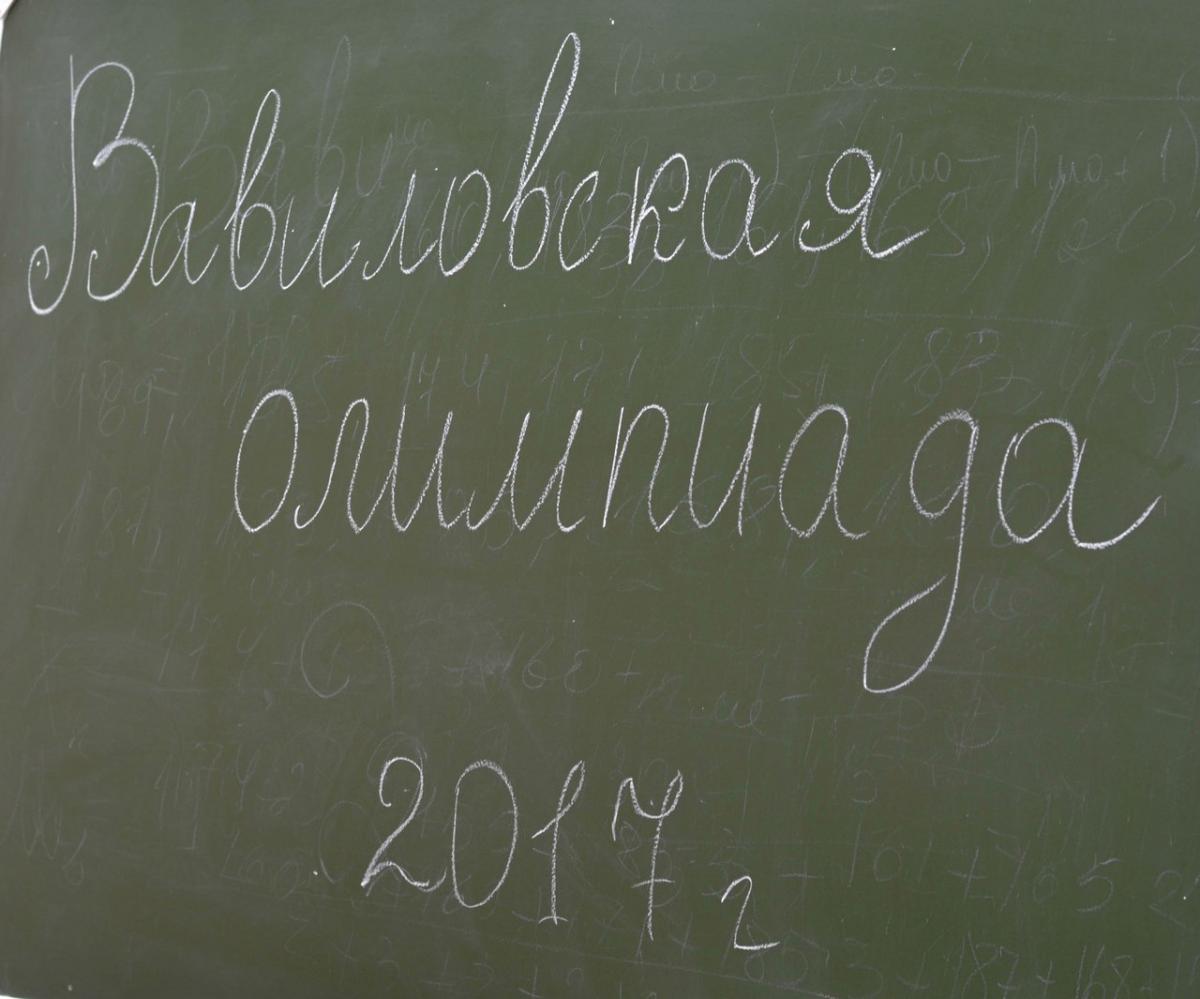 Вавиловская
олимпиада
2017 г